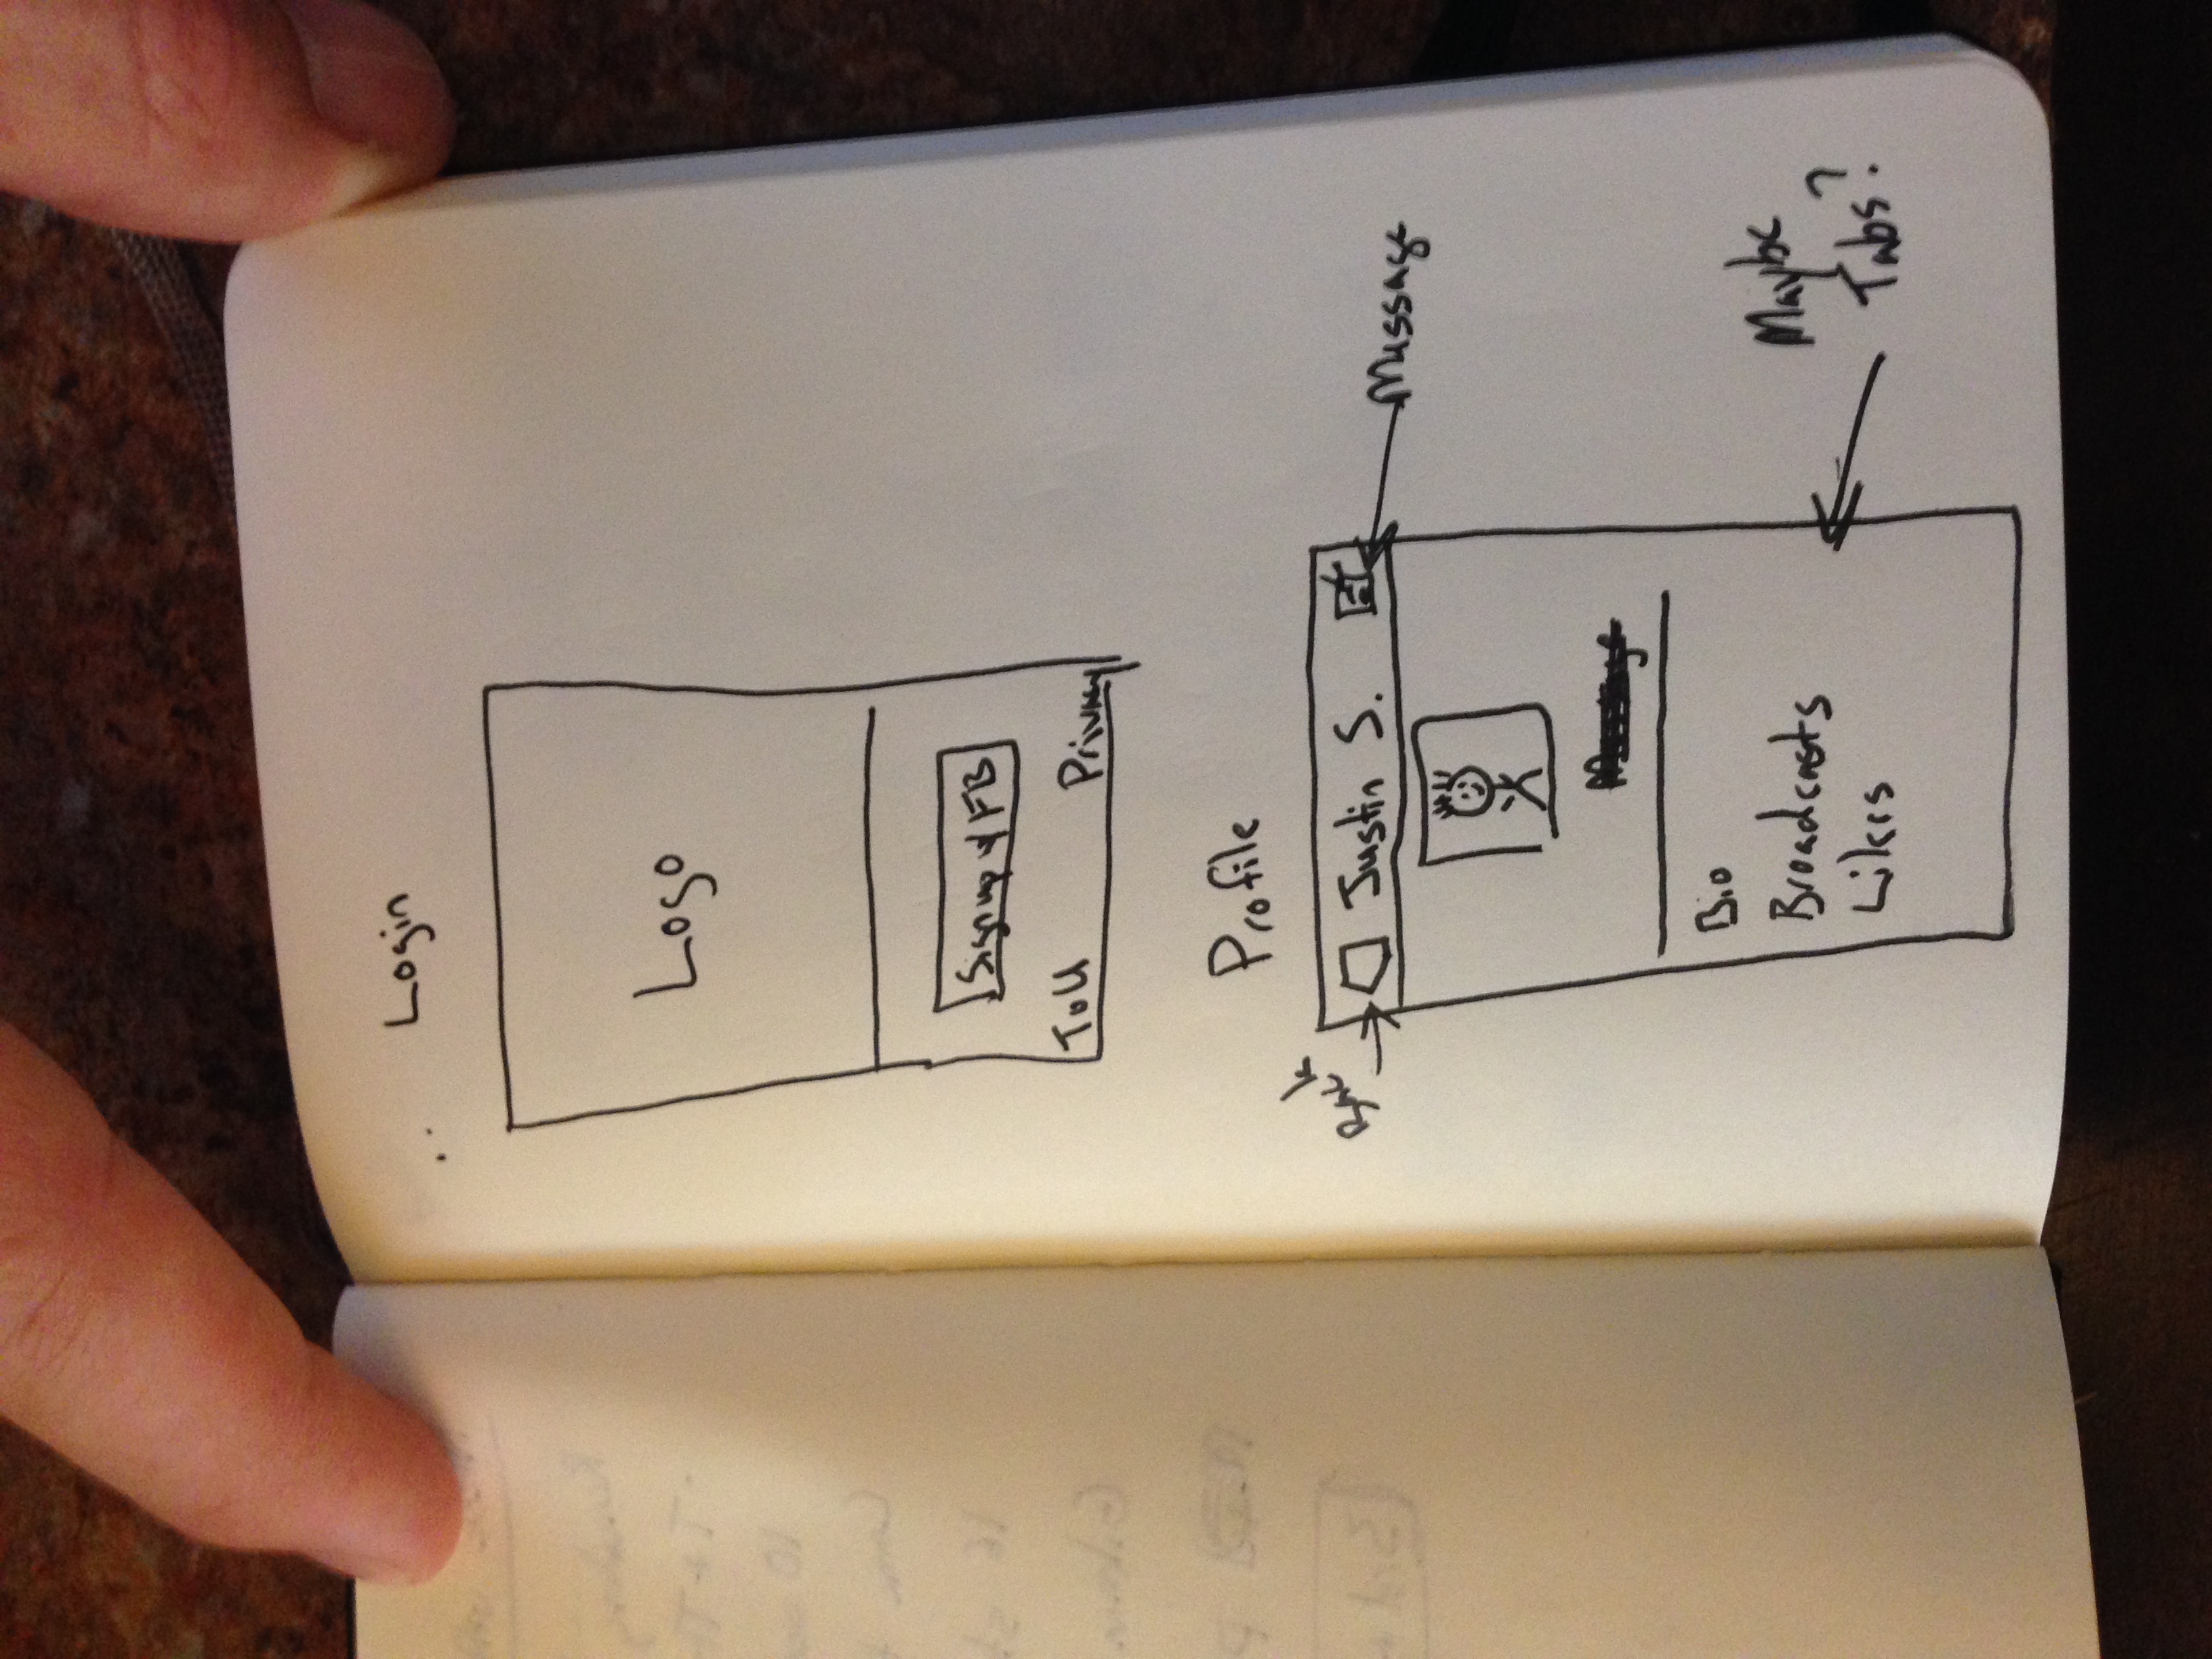 Login
Logo
Sign up w/ FB
ToU Privacy
Profile
Back
Justin S.
Message
Message
Bio
Broadcasts
Likes
Maybe
Tabs?